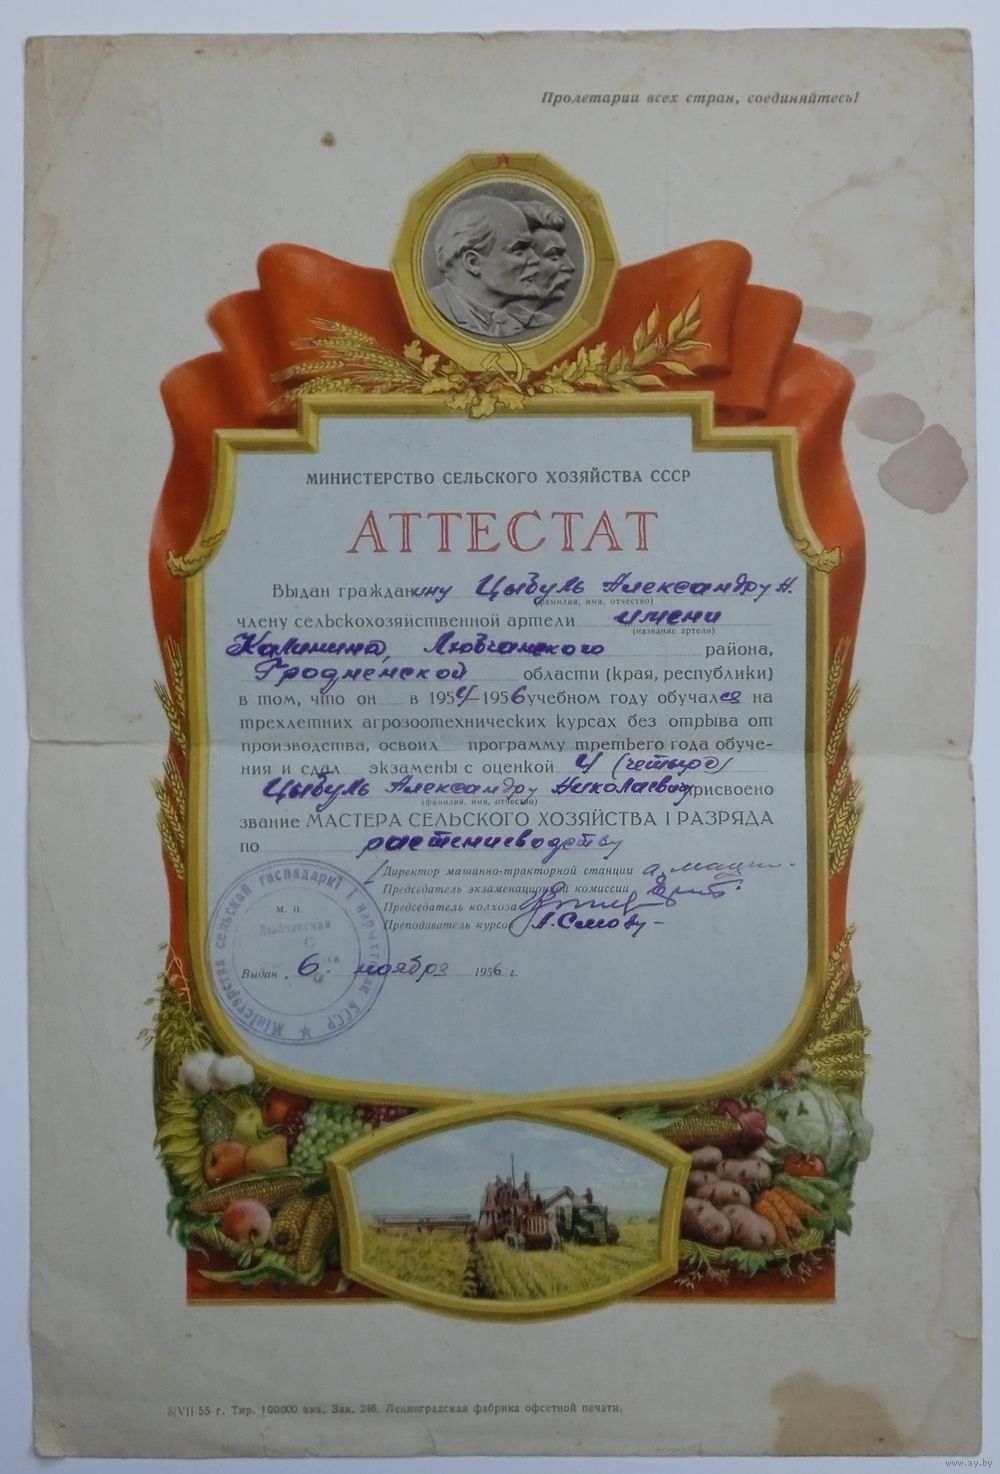 Пролетарии всех стран, соединяйтесь!
МИНИСТЕРСТВО СЕЛЬСКОГО ХОЗЯЙСТВА СССР
АТТЕСТАТ
Выдан гражданину Цыбуль Александру Н.
(фамилия, имя, отчество)
члену сельскохозяйственной артели имени
(название артели)
Калинина, Любчанского района,
Гродненской области (края, республики)
в том, что он в 1954-1956 учебном году обучался на
трехлетних агрозоотехнических курсах без отрыва от
производства, освоил программу третьего года обуче-
ния и сдал экзамены с оценкой 4 (четыре)
Цыбуль Александру Николаевичу присвоено
(фамилия, имя, отчество)
звание МАСТЕРА СЕЛЬСКОГО ХОЗЯЙСТВА I РАЗРЯДА
по растениеводству
Директор машинно-тракторной станции
Председатель экзаменационной комиссии
Председатель колхоза
Преподаватель курсов
м. п.
Выдан 6. ноября 1956 г.
Міністэрства сельскай гаспадаркі і нарыхтовак БССР
Любчанская
5/VII-55 г. Тир. 100000 экз. Зак. 246. Ленинградская фабрика офсетной печати.
www.ay.by